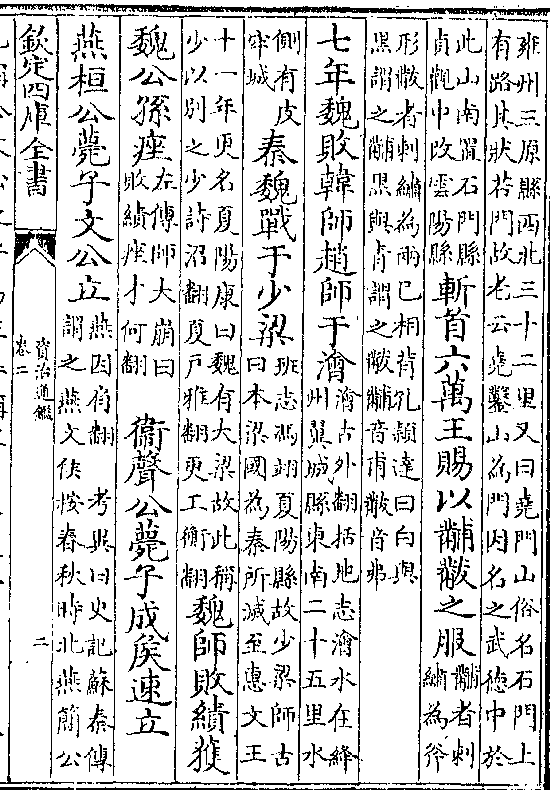 雍州三原縣西北三十二里又曰堯門山俗名石門上
有路其狀若門故老云堯鑿山為門因名之武德中於
此山南置石門縣
貞觀中改雲陽縣
斬首六萬王賜以黼黻之服
黼者刺
繡為斧
形黻者刺繡為兩己相背孔頴達曰白與
黑謂之黼黑與青謂之黻黼音甫黻音弗
七年魏敗韓師趙師于澮
澮古外翻括地志澮水在絳
州翼城縣東南二十五里水
側有皮
牢城
秦魏戰于少梁
班志馮翊夏陽縣故少梁師古
曰本梁國為秦所滅至惠文王
十一年更名夏陽康曰魏有大梁故此稱
少以别之少詩沼翻夏戸雅翻更工衡翻
魏師敗績獲
魏公孫痤
左傳師大崩曰
敗績痤才何翻
衞聲公薨子成侯速立
燕桓公薨子文公立
燕因肩翻 考異曰史記蘇秦傳
謂之燕文侯按春秋時北燕簡公
欽定四庫全書
資治通鑑
卷二
二